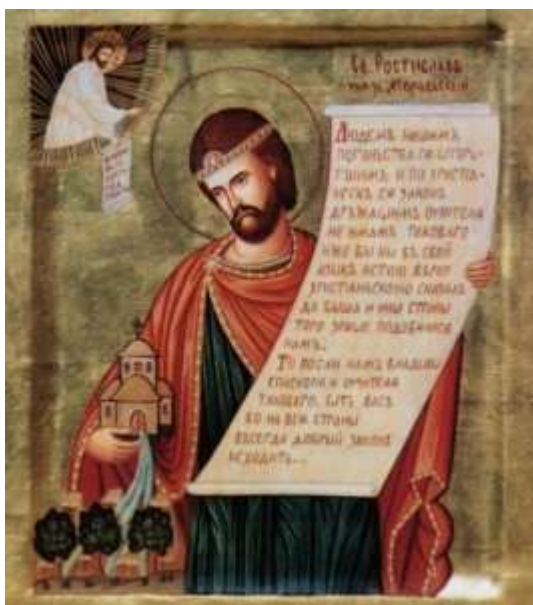 Св. Ростиславъ
Людемъ нашимъ
поганьства сѧ отврь-
гшимъ и по христо-
сѧ законъ
дръжащимъ учителꙗ
не имамъ таковаго
иже бы ны въ свой
ѧзыкъ истую вѣрꙋ
христианьскую сказалъ
да быша и ины страны
того зрѧще подобилисѧ
намъ.
То посли намъ владыко
епископа и учителꙗ
таковаго. отъ васъ
бо на всѧ страны
всегда добрый законъ
исходитъ...